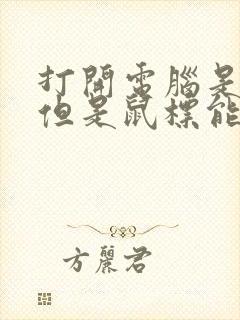 打開電腦是
但是鼠標能
方麗君